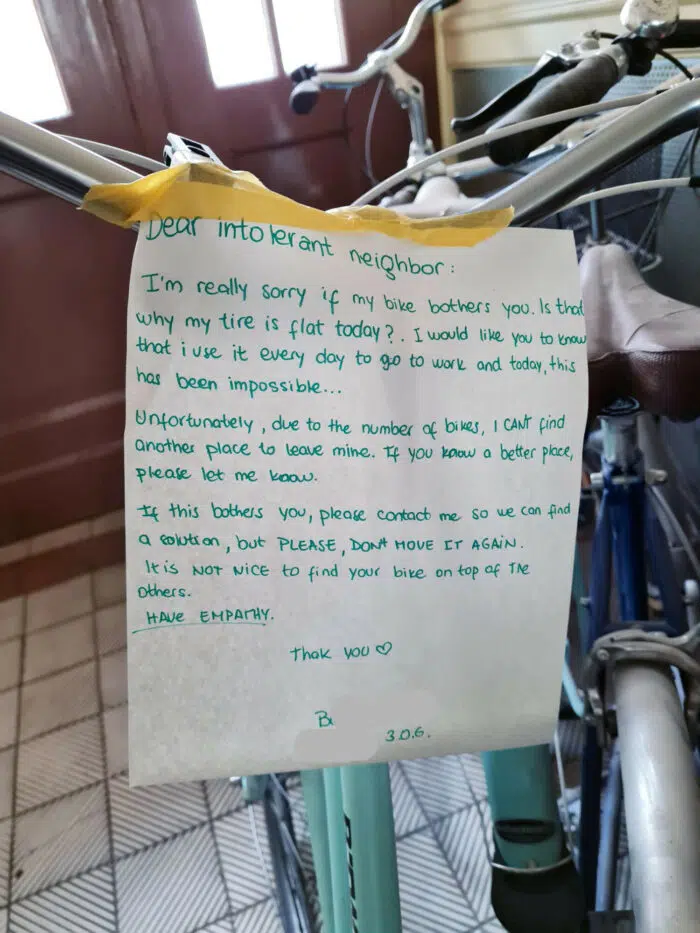 Dear intolerant neighbor:
I'm really sorry if my bike bothers you. Is that
why my tire is flat today?. I would like you to know
that i use it every day to go to work and today, this
has been impossible...
Unfortunately, due to the number of bikes, I CAN'T find
another place to leave mine. If you know a better place,
please let me know.
If this bothers you, please contact me so we can find
a solution, but PLEASE, DON'T MOVE IT AGAIN.
It is NOT NICE to find your bike on top of THE
others.
HAVE EMPATHY.
Thak you ♡
3.0.6.